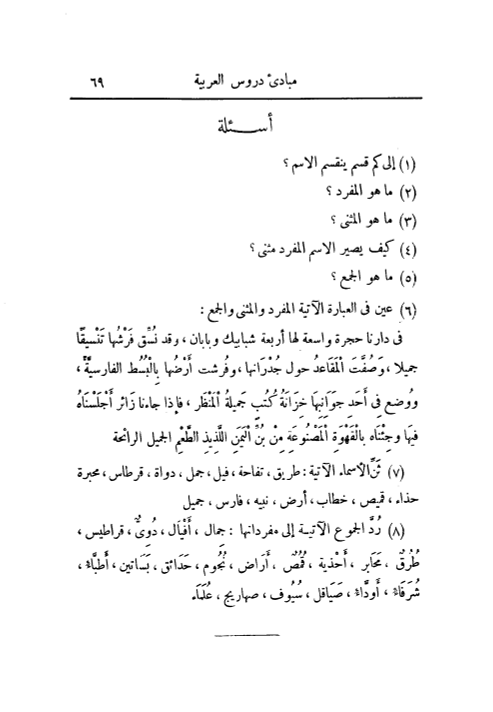 مبادئ دروس العربية ٦٩
أسئلة
(١) إلى كم قسم ينقسم الاسم ؟
(٢) ما هو المفرد ؟
(٣) ما هو المثنى ؟
(٤) كيف يصير الاسم المفرد مثنى ؟
(٥) ما هو الجمع ؟
(٦) عين فى العبارة الآتية المفرد والمثنى والجمع :
فى دارنا حجرة واسعة لها أربعة شبابيك وبابان ، وقد نُسِّق فَرْشُها تَنْسيقًا
جميلا ، وَصُفَّت الْمَقَاعدُ حول جُدْرَانها ، وفُرشت أَرْضُها بِالْبُسُط الفارسيَّة ،
وَوُضع فِى أَحَد جَوَانِبهَا خِزَانَةُ كُتُبٍ جَميلةُ الْمَنْظَر ، فاذا جاءنا زَائر أَجْلَسْنَاه
فيهَا وجِئْنَاه بالْقَهْوَةِ الْمَصْنُوعَةِ مِنْ بُنِّ الْيَمَنِ اللَّذِيذِ الطَّعْمِ الجميل الرائحة
(٧) ثَنِّ الأسماء الآتية : طريق ، تفاحة ، فيل ، جمل ، دواة ، قرطاس ، محبرة
حذاء ، قميص ، خطاب ، أرض ، نبيه ، فارس ، جميل
(٨) رُدَّ الجموع الآتيـة إلى مفرداتها : جمال ، أَفْيَال ، دُوِىٌّ ، قراطيس ،
طُرُقٌ ، مَحَابر ، أَحْذية ، قُمُصٌ ، أَرَاض ، نُجُوم ، حَدَائق ، بَسَاتين ، أَطبَّاءُ ،
شُرَفَاءُ ، أَودَّاءُ ، صَيَاقل ، سُيُوف ، صهاريج ، عُلَمَاء